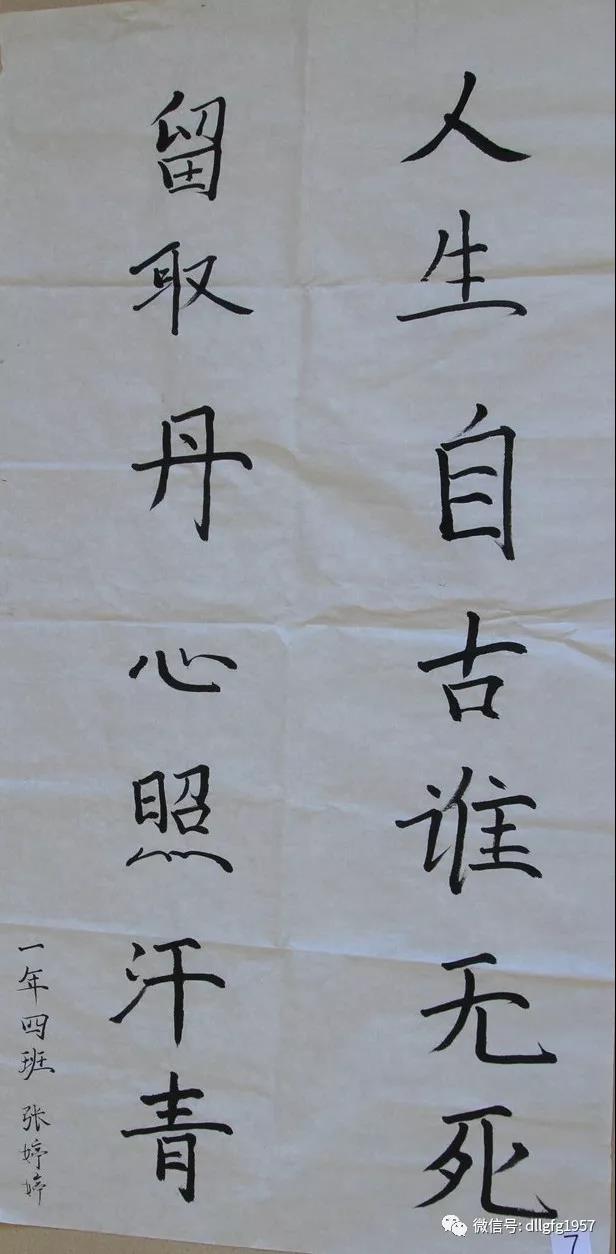 人生自古谁无死
留取丹心照汗青
一年四班 张婷婷
微信号: dllgfg1957
7